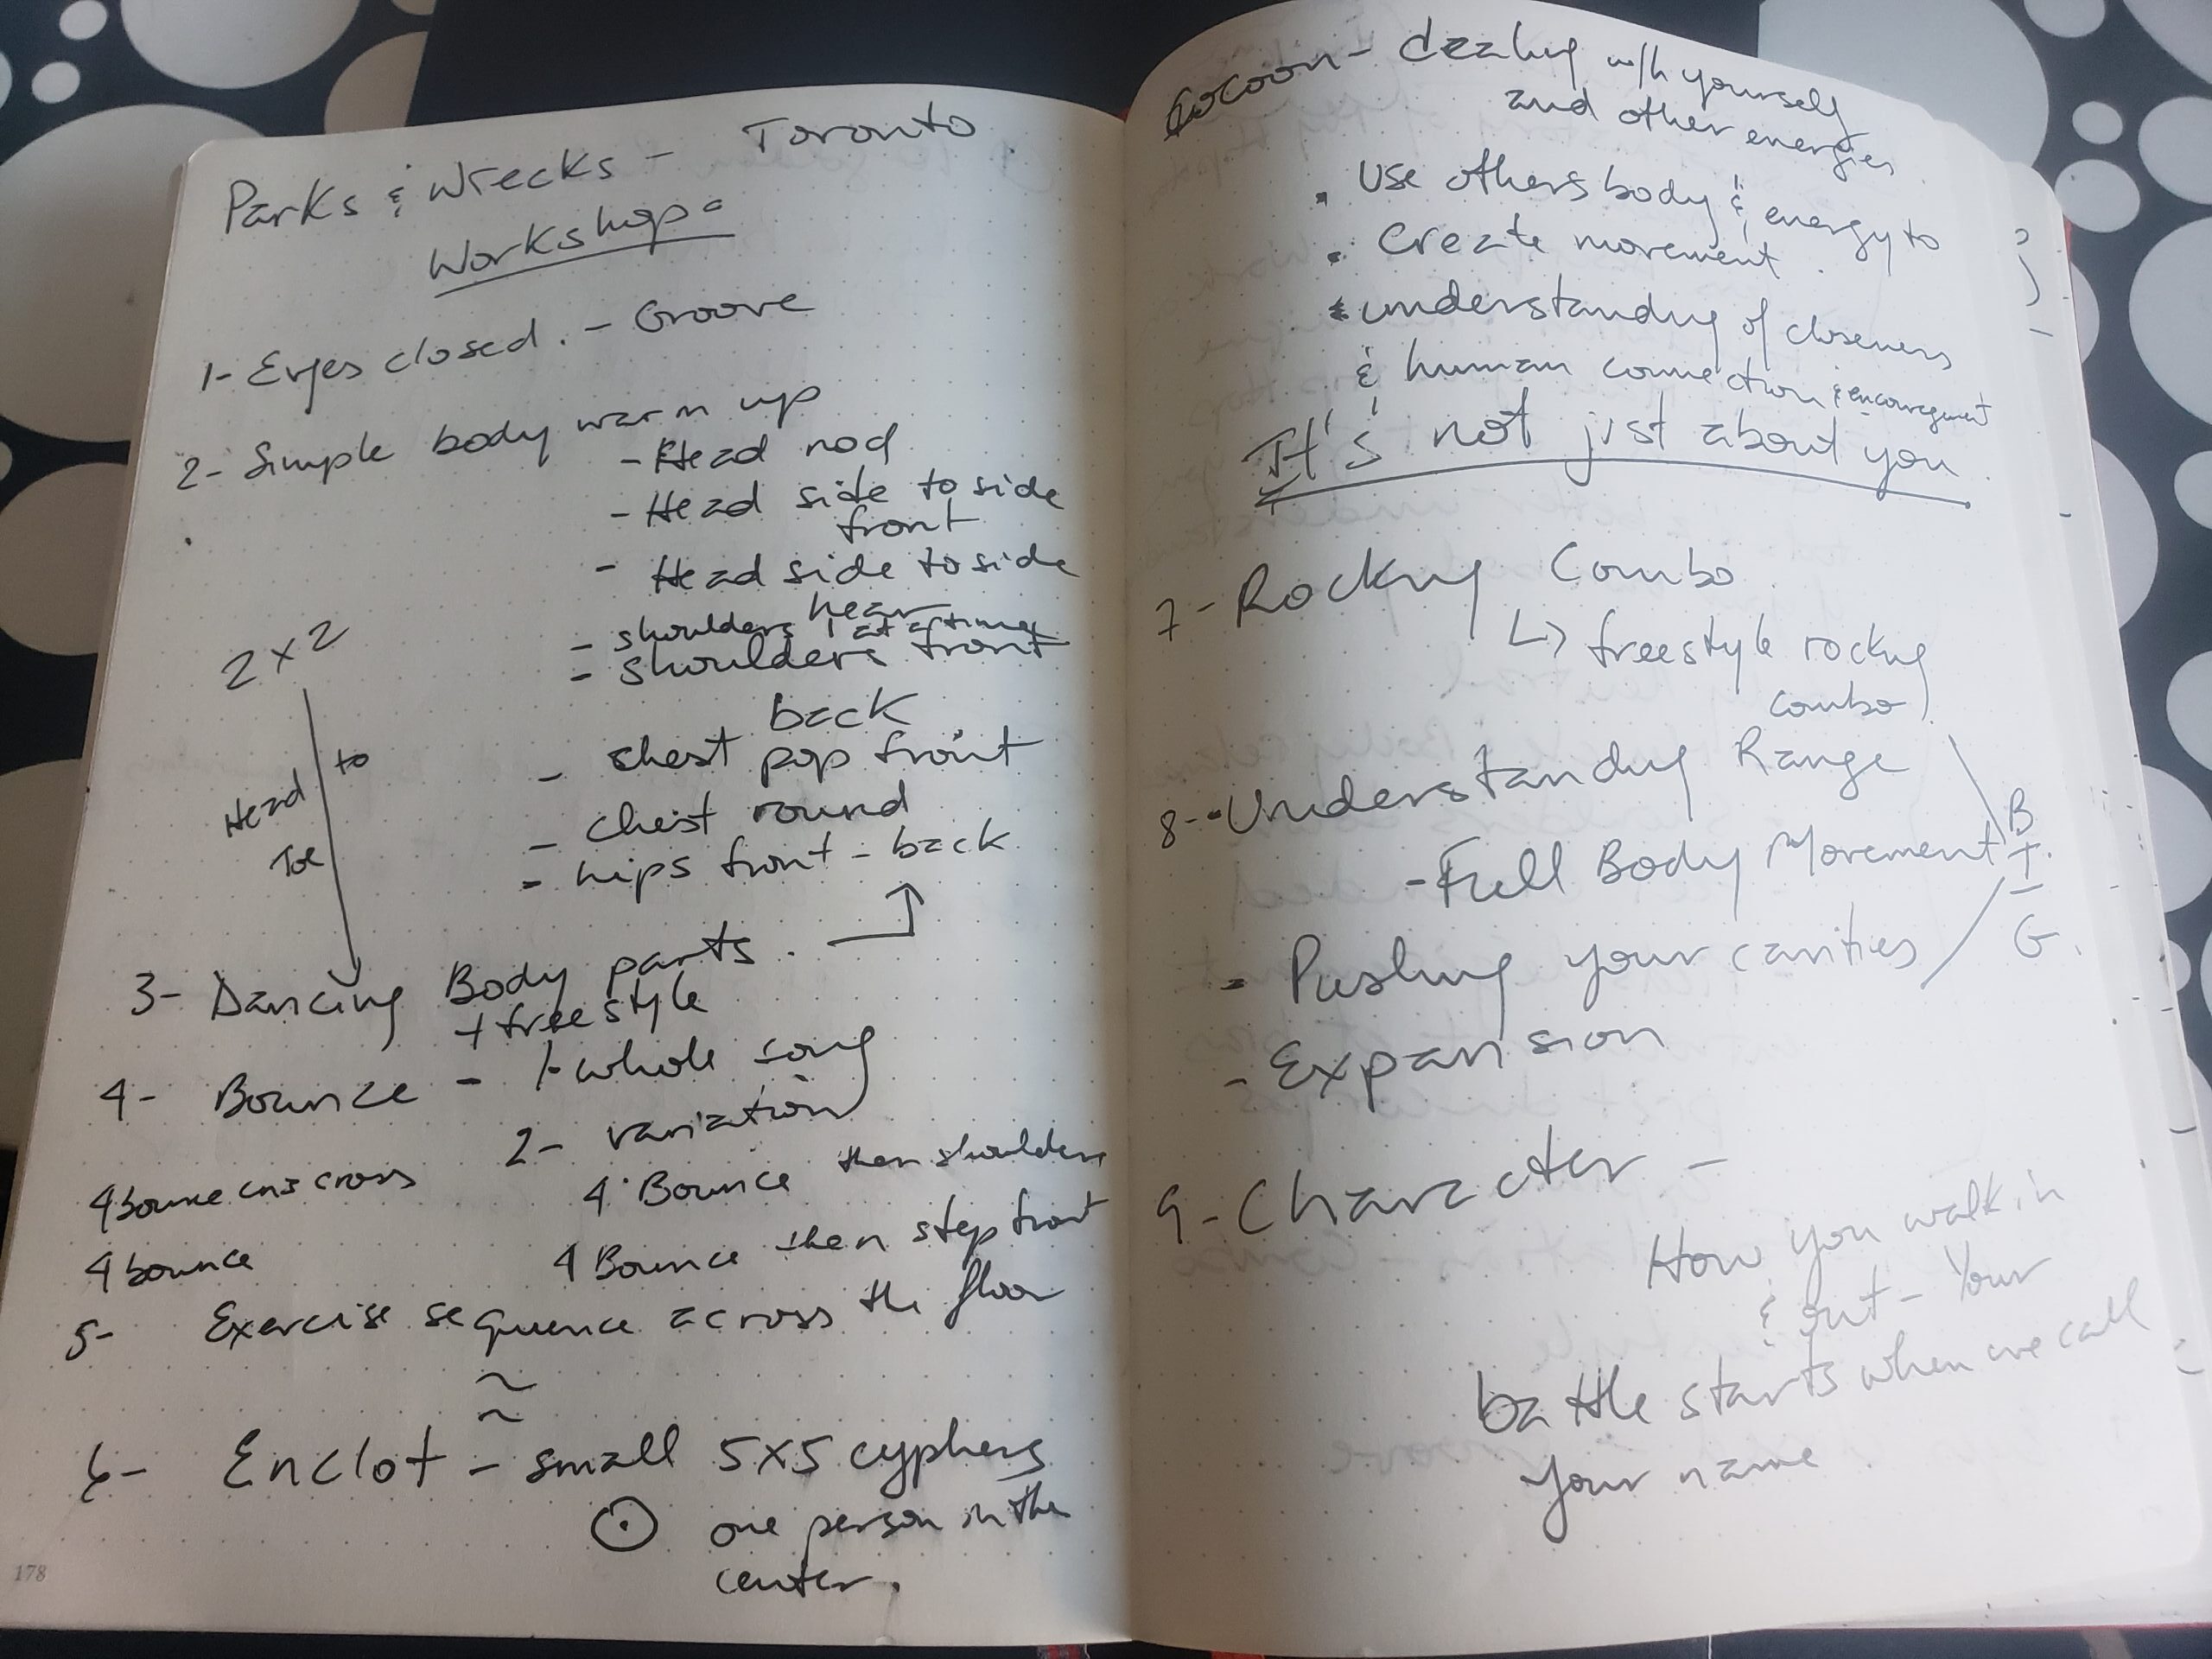 Parks & Wrecks - Toronto
Workshop:
1- Eyes closed. - Groove
2- Simple body warm up
- Head nod
- Head side to side
front
- Head side to side
hear
- shoulders 1 at a time
- shoulders front
back
2x2
Head to
Toe
- chest pop front
- chest round
- hips front - back
3- Dancing Body parts.
+ freestyle
4- Bounce - 1- whole song
2- variation
4 Bounce then shoulders
4 bounce criss cross
4 Bounce then step front
4 bounce
5- Exercise sequence across the floor
~
~
6- Enclot - small 5x5 cyphers
one person in the
center.
178
Cocoon - dealing with yourself
and other energies
• Use others body & energy to
• Create movement.
• understanding of closeness
& human connection & encouragement
It's not just about you
7- Rocking Combo
↳ freestyle rocking
combo
8- Understanding Range
- Full Body Movement
B
I
G.
- Pushing your cavities
- Expansion
9- Character -
How you walk in
& out - Your
battle starts when we call
your name